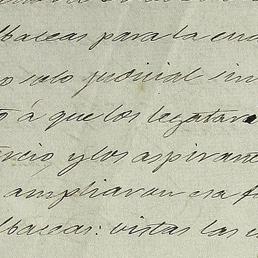 lbaceas para la ena
solo judicial sin
ó á que los legatar
rcio, y los aspirant
ampliaran esa f
lbaceas: vistas las